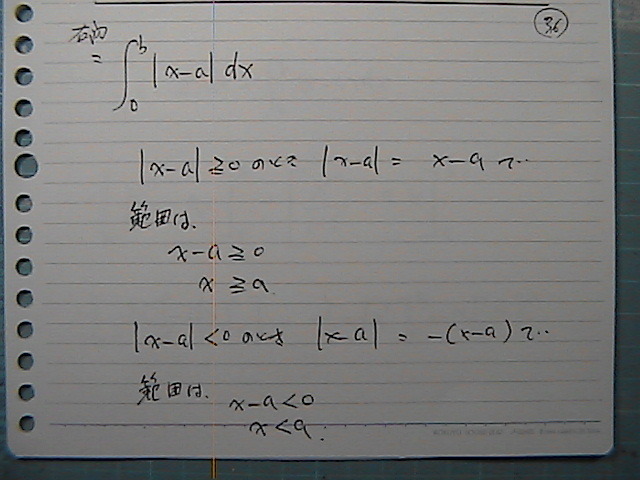 36
右辺
= ∫₀ᵇ |x-a| dx
|x-a| ≧0 のとき |x-a| = x-a で..
範囲は、
x-a ≧ 0
x ≧ a
|x-a| <0 のとき |x-a| = -(x-a) で..
範囲は、 x-a<0
x<a.